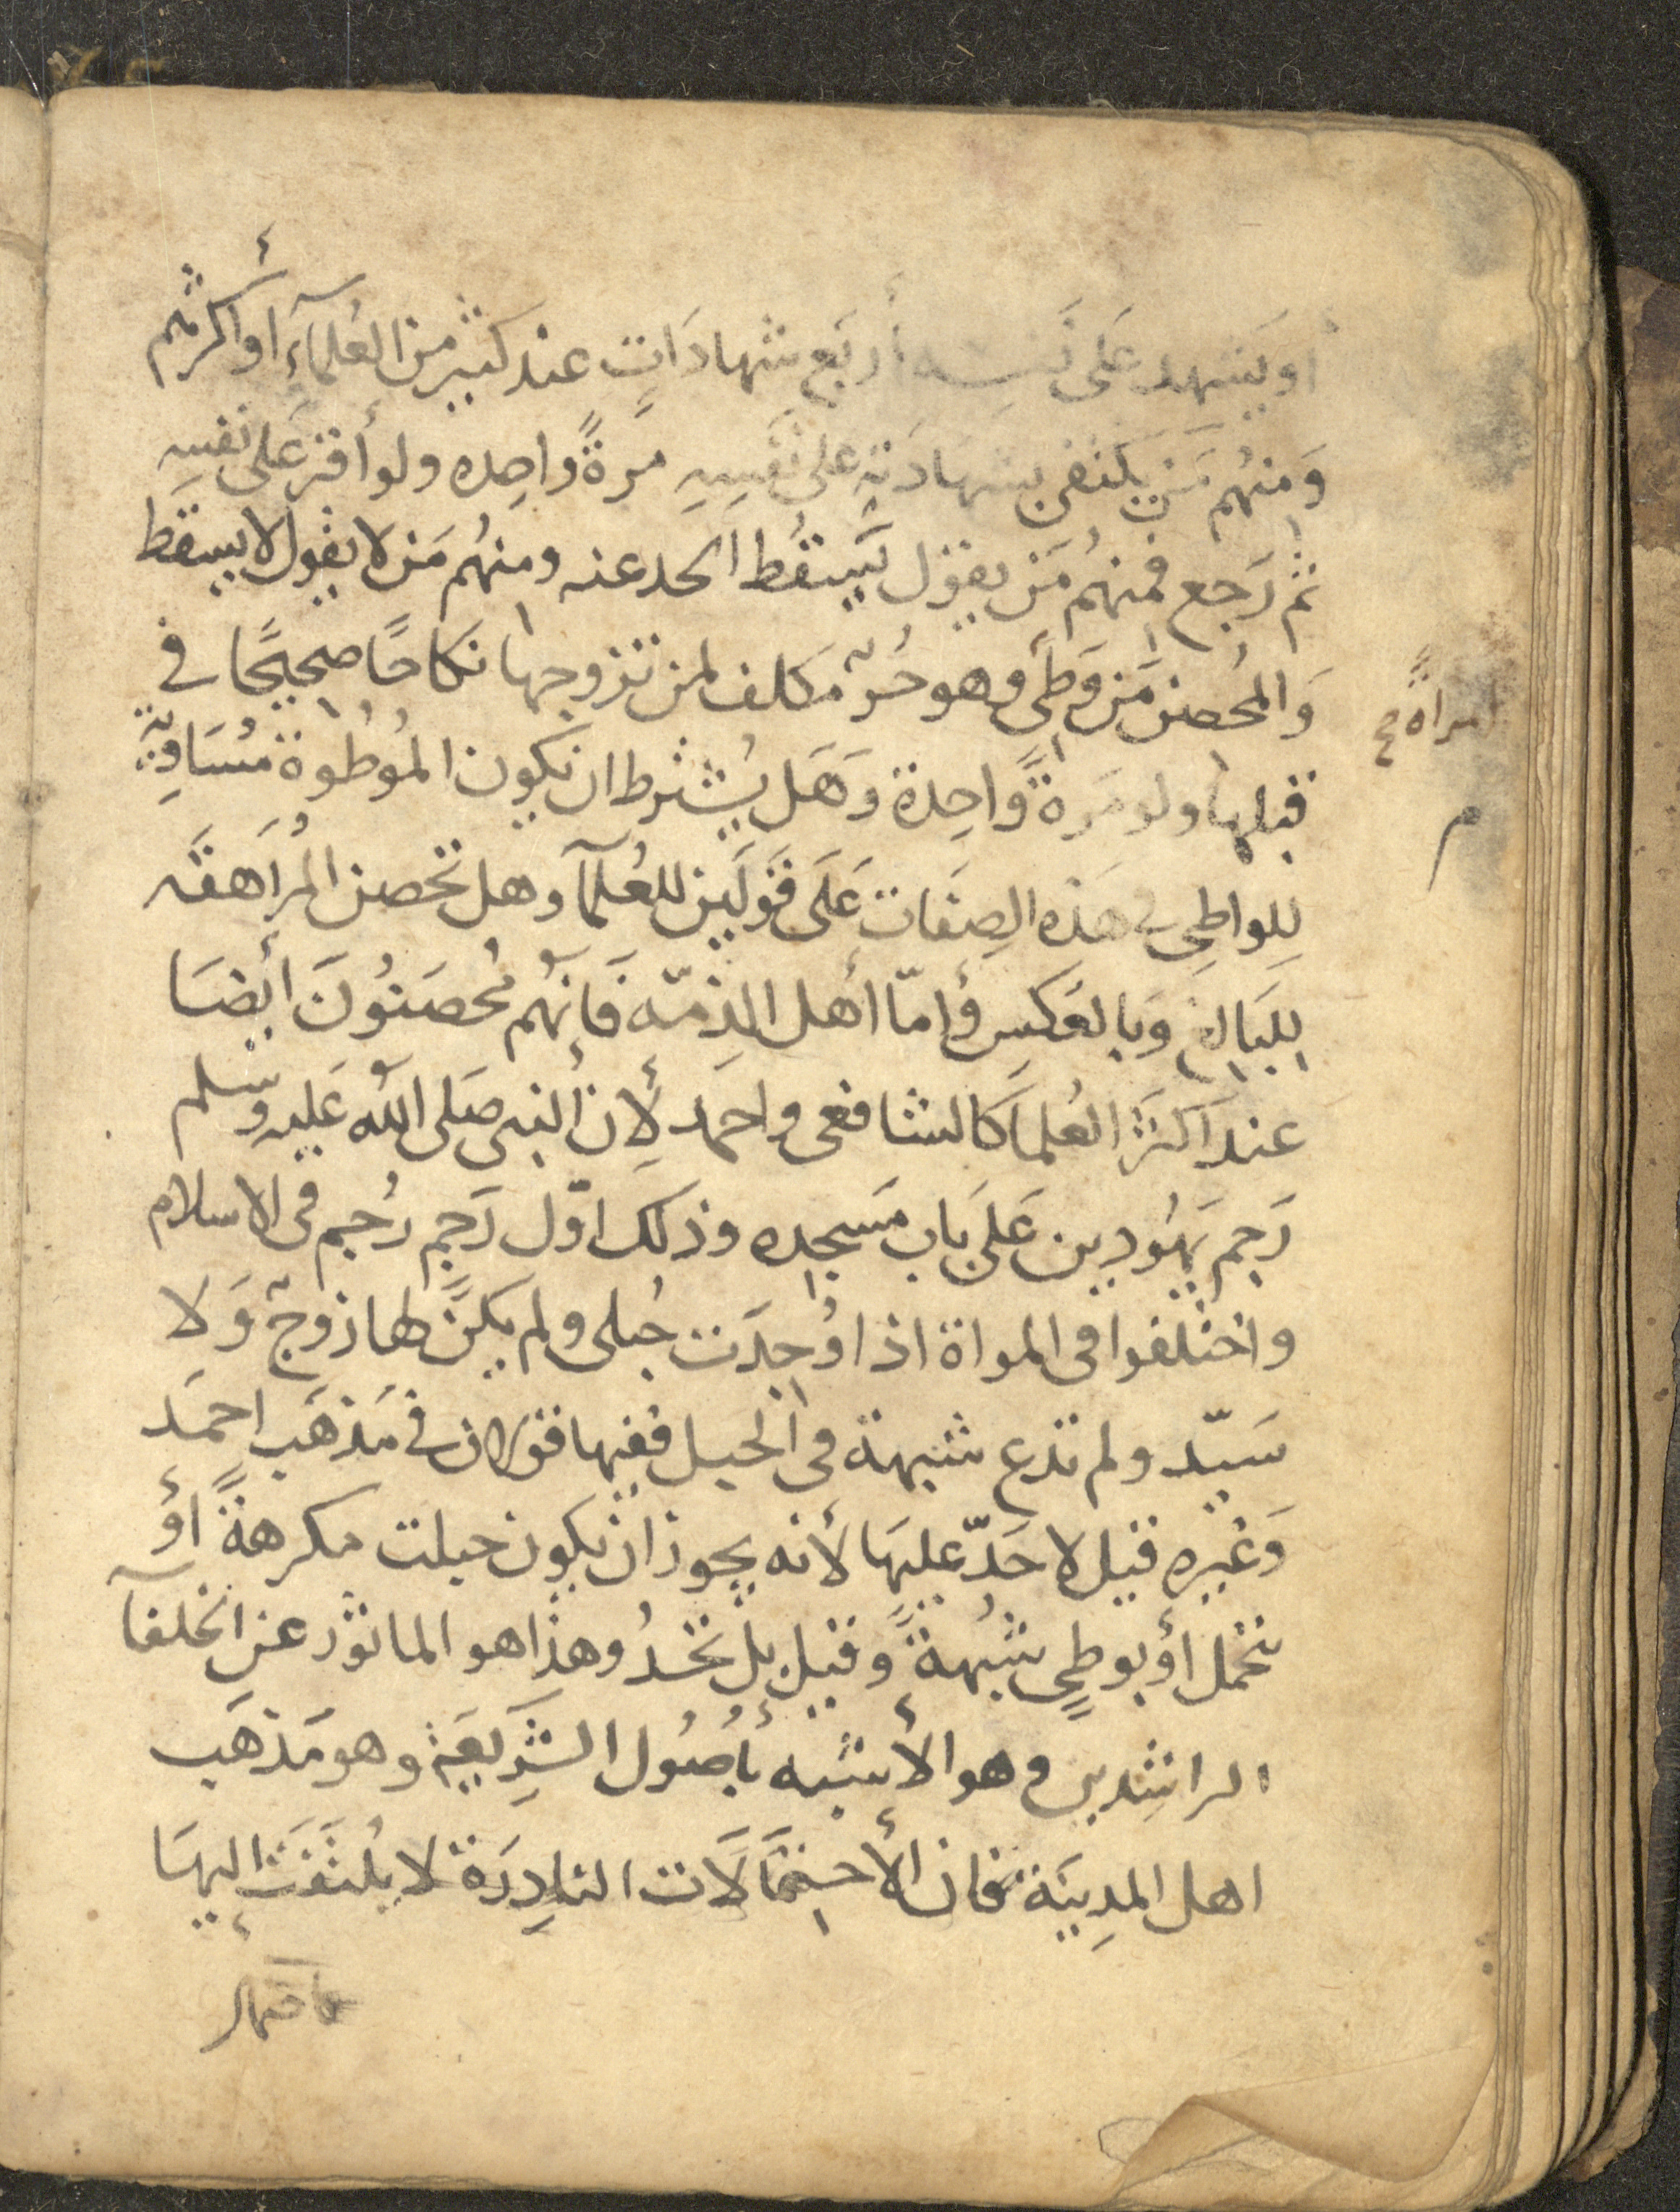 أو يشهد على نفسه أربع شهادات عند كثير من العلمآء أو أكثرهم
وَمنهُم مَن يكتفى بشهادته على نفسِهِ مرةً واحِده ولو أقر على نفسِهِ
ثم رَجع فمنهُم مَن يقول يَسقُط الحد عنه ومنهُم مَن لا يقول لا يسقط
وَالمُحصن مَن وَطِئ وهو حُرٌ مكلف لمن تزوجها نكاحًا صحيحًا في
قبلها ولو مَرةً واحِدة وَهَل يُشترط ان تكون الموُطُوة مُسَاوِيَةٌ
لِلواطِى فى هَذِه الصِفَات عَلَى قَولَين للعُلمآ وهل تحصن المُرَاهقَه
لِلبَالغ وَبالعَكسِ وأمّا أهل الذِمّه فَإنهُم مُحصَنُونَ أيضَا
عند أكثر العُلما كالشافعى واحمَد لأِن النبى صَلى الله عَليهِ وسلم
رَجم يَهُوديين عَلىَ بَاب مَسجِده وذلك اوّل رَجم رُجم فى الاسلام
واختلفوا فى المراة اذا وُجِدَت حُبلى ولم يكن لها زوجٌ وَلا
سَيّد ولم تدع شبهة فى الحبل ففيها قولان في مَذهَب احمَد
وَغيره قيل لا حَدّ عليهَا لأنه يجوز ان تكون حبلت مكرهةً اوْ
تحمل أو بوطىٍ شُبهةً وقيل بل تحدُ وهذا هو الماثور عن الخلفآ
الراشِدين وهو الأشبه بأُصُول الشرِيعَة وهو مَذهَب
اهل المدِينَة فان الأحتمَالاَت النادِرَة لا يُلتَفَت اليهَا
امراةً صح
م
كاحتمال